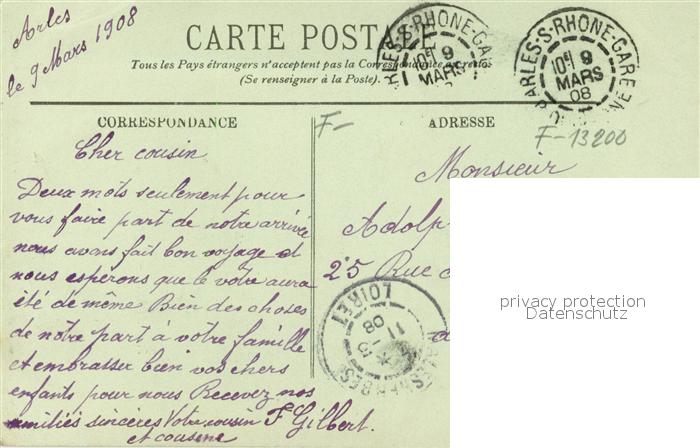 Arles
le 9 Mars 1908
CARTE POSTALE
Tous les Pays étrangers n'acceptent pas la Correspondance au recto
(Se renseigner à la Poste).
ARLES-S-RHONE-GARE
10 9
MARS
ARLES-S-RHONE-GARE
10 9
MARS
08
F-
F-13200
CORRESPONDANCE
ADRESSE
Cher cousin
Deux mots seulement pour
vous faire part de notre arrivée
nous avons fait bon voyage et
nous espérons que le votre aura
été de même Bien des choses
de notre part à votre famille
et embrasser bien vos chers
enfants pour nous Recevez nos
amitiés sincères Votre cousin F Gilbert.
et cousine
Monsieur
Adolp
25 Rue
LOIRET
11 - 3
08
privacy protection
Datenschutz